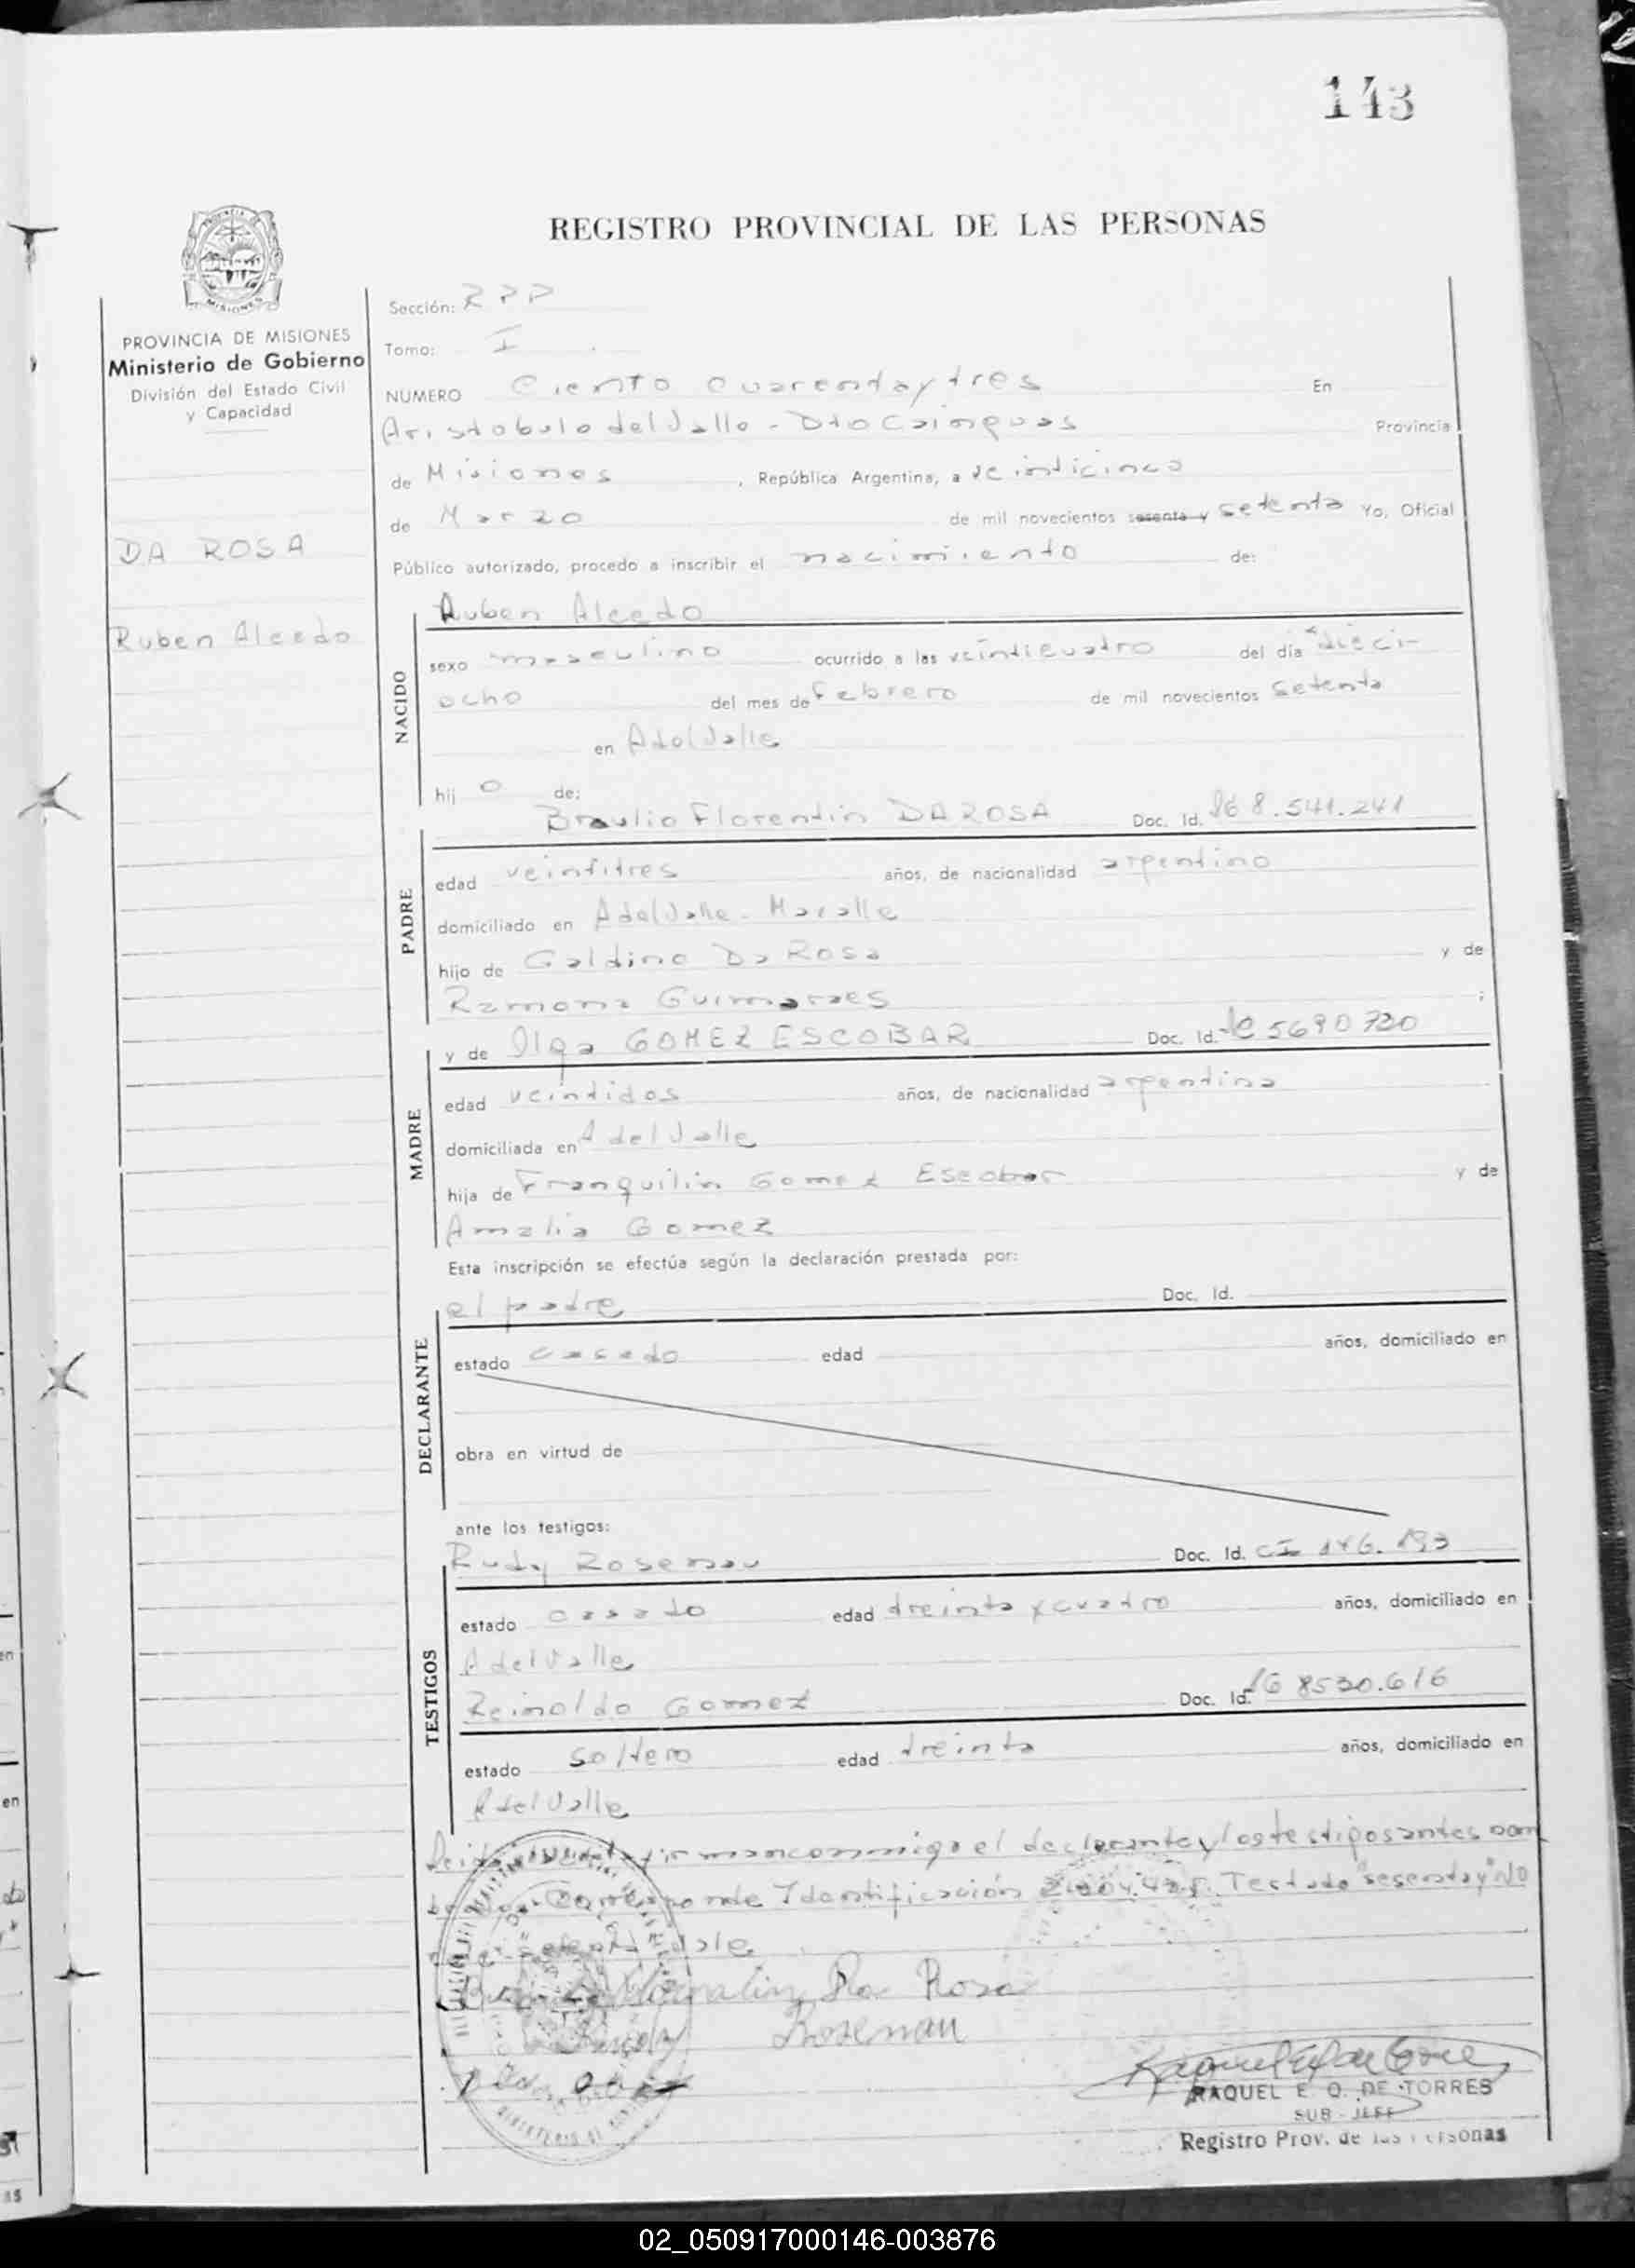 143
REGISTRO PROVINCIAL DE LAS PERSONAS
PROVINCIA DE MISIONES
Ministerio de Gobierno
División del Estado Civil
y Capacidad
DA ROSA
Ruben Alcedo
Sección: RPP
Tomo: I
NUMERO Ciento cuarentaytres En
Aristobulo del Valle - Dto Cainguas Provincia
de Misiones, República Argentina, a veinticinco
de Marzo de mil novecientos sesenta y setenta Yo, Oficial
Público autorizado, procedo a inscribir el nacimiento de:
NACIDO
Ruben Alcedo
sexo masculino ocurrido a las veinticuatro del día dieci-
ocho del mes de Febrero de mil novecientos setenta
en AdelValle
hij o de:
PADRE
Braulio Florentin DA ROSA Doc. Id. 8.541.241
edad veintitres años, de nacionalidad argentino
domiciliado en AdelValle -
hijo de Galdino Da Rosa y de
Ramona Guimaraes ;
MADRE
y de Olga GOMEZ ESCOBAR Doc. Id. 5690720
edad veintidos años, de nacionalidad argentina
domiciliada en AdelValle
hija de Franquilin Gomez Escobar y de
Amalia Gomez
Esta inscripción se efectúa según la declaración prestada por:
DECLARANTE
el padre Doc. Id.
estado casado edad años, domiciliado en
obra en virtud de
ante los testigos:
TESTIGOS
Rudy Rosenau Doc. Id. CI 146.193
estado casado edad treinta y cuatro años, domiciliado en
AdelValle
Reinoldo Gomez Doc. Id. 8530.616
estado soltero edad treinta años, domiciliado en
AdelValle
firman conmigo el declarante y los testigos antes nom
Corresponde Identificación Testado "sesenta y" No
vale
Da Rosa
Rosenau
RAQUEL E. O. DE TORRES
SUB-JEFE
Registro Prov. de las Personas
02_050917000146-003876